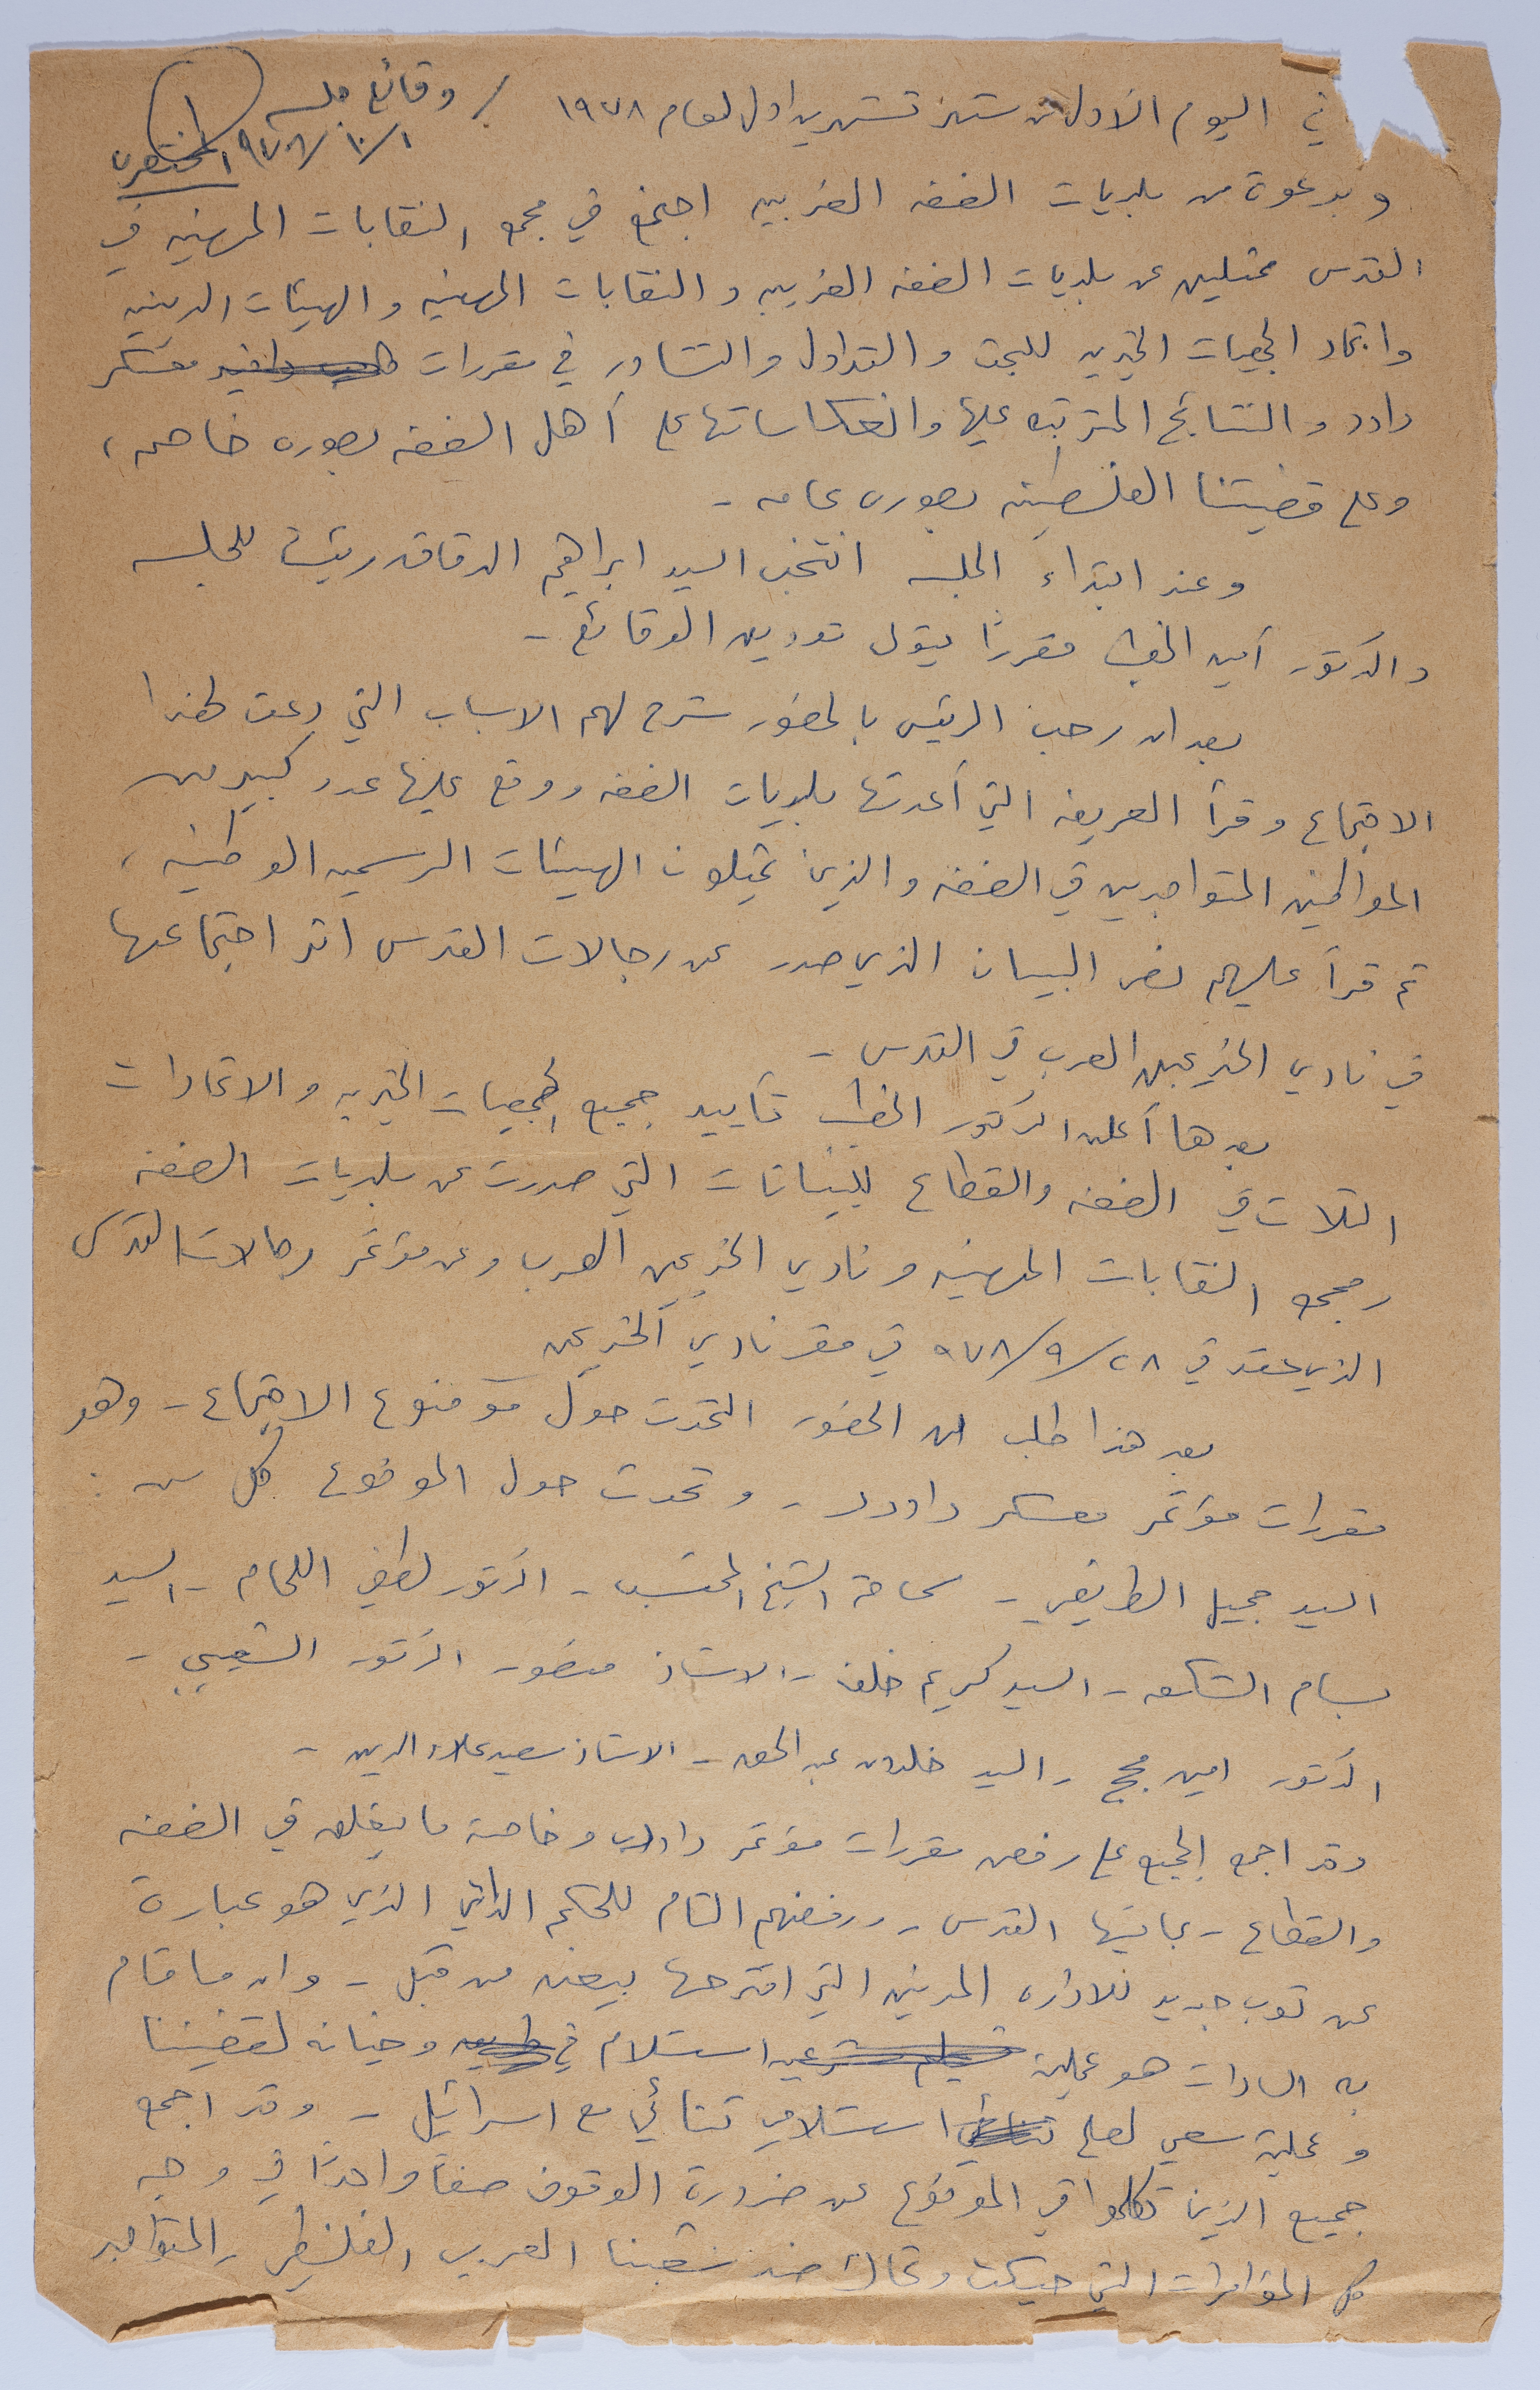 في اليوم الأول من شهر تشرين اول لعام ١٩٧٨ / وقائع جلسه ١
١/١٠/٩٧٨ المختصره
وبدعوة من بلديات الضفه الغربيه اجتمع في مجمع النقابات المهنيه في
القدس ممثلين عن بلديات الضفه الغربيه والنقابات المهنيه والهيئات الدينيه
واتحاد الجمعيات الخيريه للبحث والتداول والتشاور في مقررات معسكر
داود والنتائج المترتبه عليها وانعكاساتها على أهل الضفه بصوره خاصه،
وعلى قضيتنا الفلسطينيه بصوره عامه -
وعند ابتداء الجلسه انتخب السيد ابراهيم الدقاق رئيسًا للجلسه
والدكتور أمين الخطيب مقررًا يتولى تدوين الوقائع -
بعد ان رحب الرئيس بالحضور شرح لهم الاسباب التي دعت لهذا
الاجتماع وقرأ العريضه التي أعدتها بلديات الضفه ووقع عليها عدد كبير من
المواطنين المتواجدين في الضفه والذين يمثلون الهيئات الرسميه الوطنيه،
ثم قرأ عليهم نص البيان الذي صدر عن رجالات القدس اثر اجتماعها
في نادي الخريجين العرب في القدس -
بعدها أعلن الدكتور الخطيب تأييد جميع الجمعيات الخيريه والاتحادات
الثلاث في الضفه والقطاع للبيانات التي صدرت عن بلديات الضفه
ومجمع النقابات المهنيه ونادي الخريجين العرب وعن مؤتمر رجالات القدس
الذي عقد في ٢٨/٩/٩٧٨ في مقر نادي الخريجين
بعد هذا طلب من الحضور التحدث حول موضوع الاجتماع - وهو
مقررات مؤتمر معسكر داوود - وتحدث حول الموضوع كل من :
السيد جميل الطريفي - سماحة الشيخ المحتسب - الدكتور لطفي اللحام - السيد
بسام الشكعه - السيد كريم خلف - الاستاذ منصور - الدكتور الشعيبي -
الدكتور امين مجج - السيد خلدون عبد الحق - الاستاذ سعيد علاء الدين -
وقد اجمع الجميع على رفض مقررات مؤتمر داود وخاصة ما يتعلق في الضفه
والقطاع - بما فيها القدس - ورفضهم التام للحكم الذاتي الذي هو عبارة
عن ثوب جديد للاداره المدنيه التي اقترحها بيغن من قبل - وان ما قام
به السادات هو عملية استسلام في وخيانه لقضيتنا
وعملية سعي لصلح استسلامي ثنائي مع اسرائيل - وقد اجمع
جميع الذين تكلموا في الموضوع عن ضرورة الوقوف صفًا واحدًا في وجه
كل المؤامرات التي حيكت وتحاك ضد شعبنا العربي الفلسطيني المتواجد